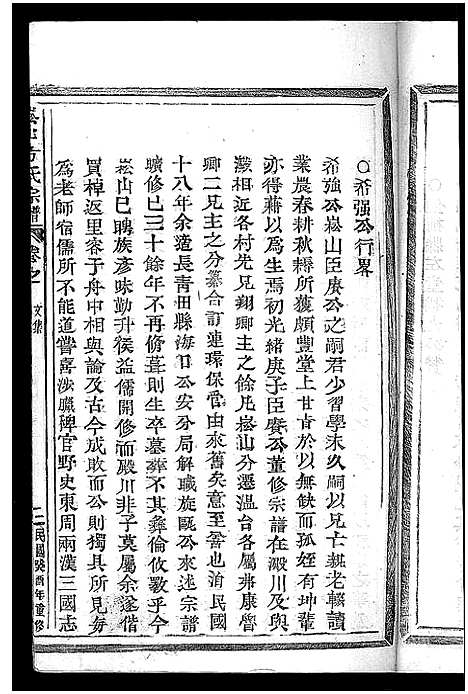 ○希强公行畧
希强公崧山臣庚公之嗣君少習學未久嗣以兄亡親老輟讀
業農春耕秋耨所獲頗豐堂上甘旨於以無缺而孤姪有坤輩
亦得藉以爲生焉初光緒庚子臣庚公董修宗譜在澱川及與
澱相近各村先兄翔卿主之餘凡崧山分遷溫台各屬弗康詹
卿二兄主之分纂合訂連環保管由來舊矣意至善也洎民國
十八年余造長青田縣海口公安分局解職旋甌公來述宗譜
曠修已三十餘年不再修葺則生卒墓葬不其彝倫攸斁乎今
崧山已賜族彥味勤升侯益儒開修而澱川非子莫屬余遂偕
買棹返里容于舟中相與論及古今成敗而公則獨具所見夯
爲老師宿儒所不能道嘗喜涉臘稗官野史東周兩漢三國志
方氏宗譜
卷之一
文集
二
民國癸酉年重修